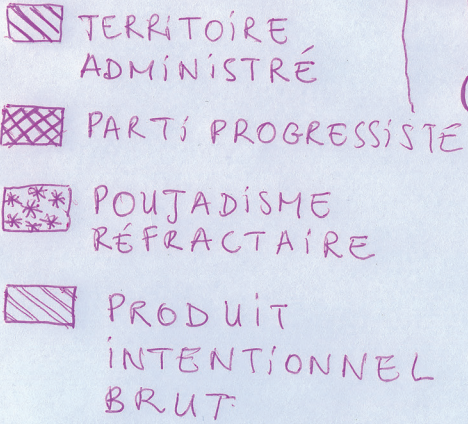 TERRITOIRE
ADMINISTRÉ
PARTI PROGRESSISTE
POUJADISME
RÉFRACTAIRE
PRODUIT
INTENTIONNEL
BRUT